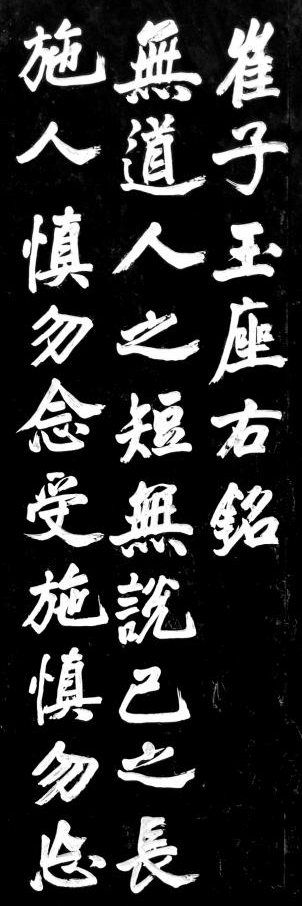 崔子玉座右銘
無道人之短無說己之長
施人慎勿念受施慎勿忘